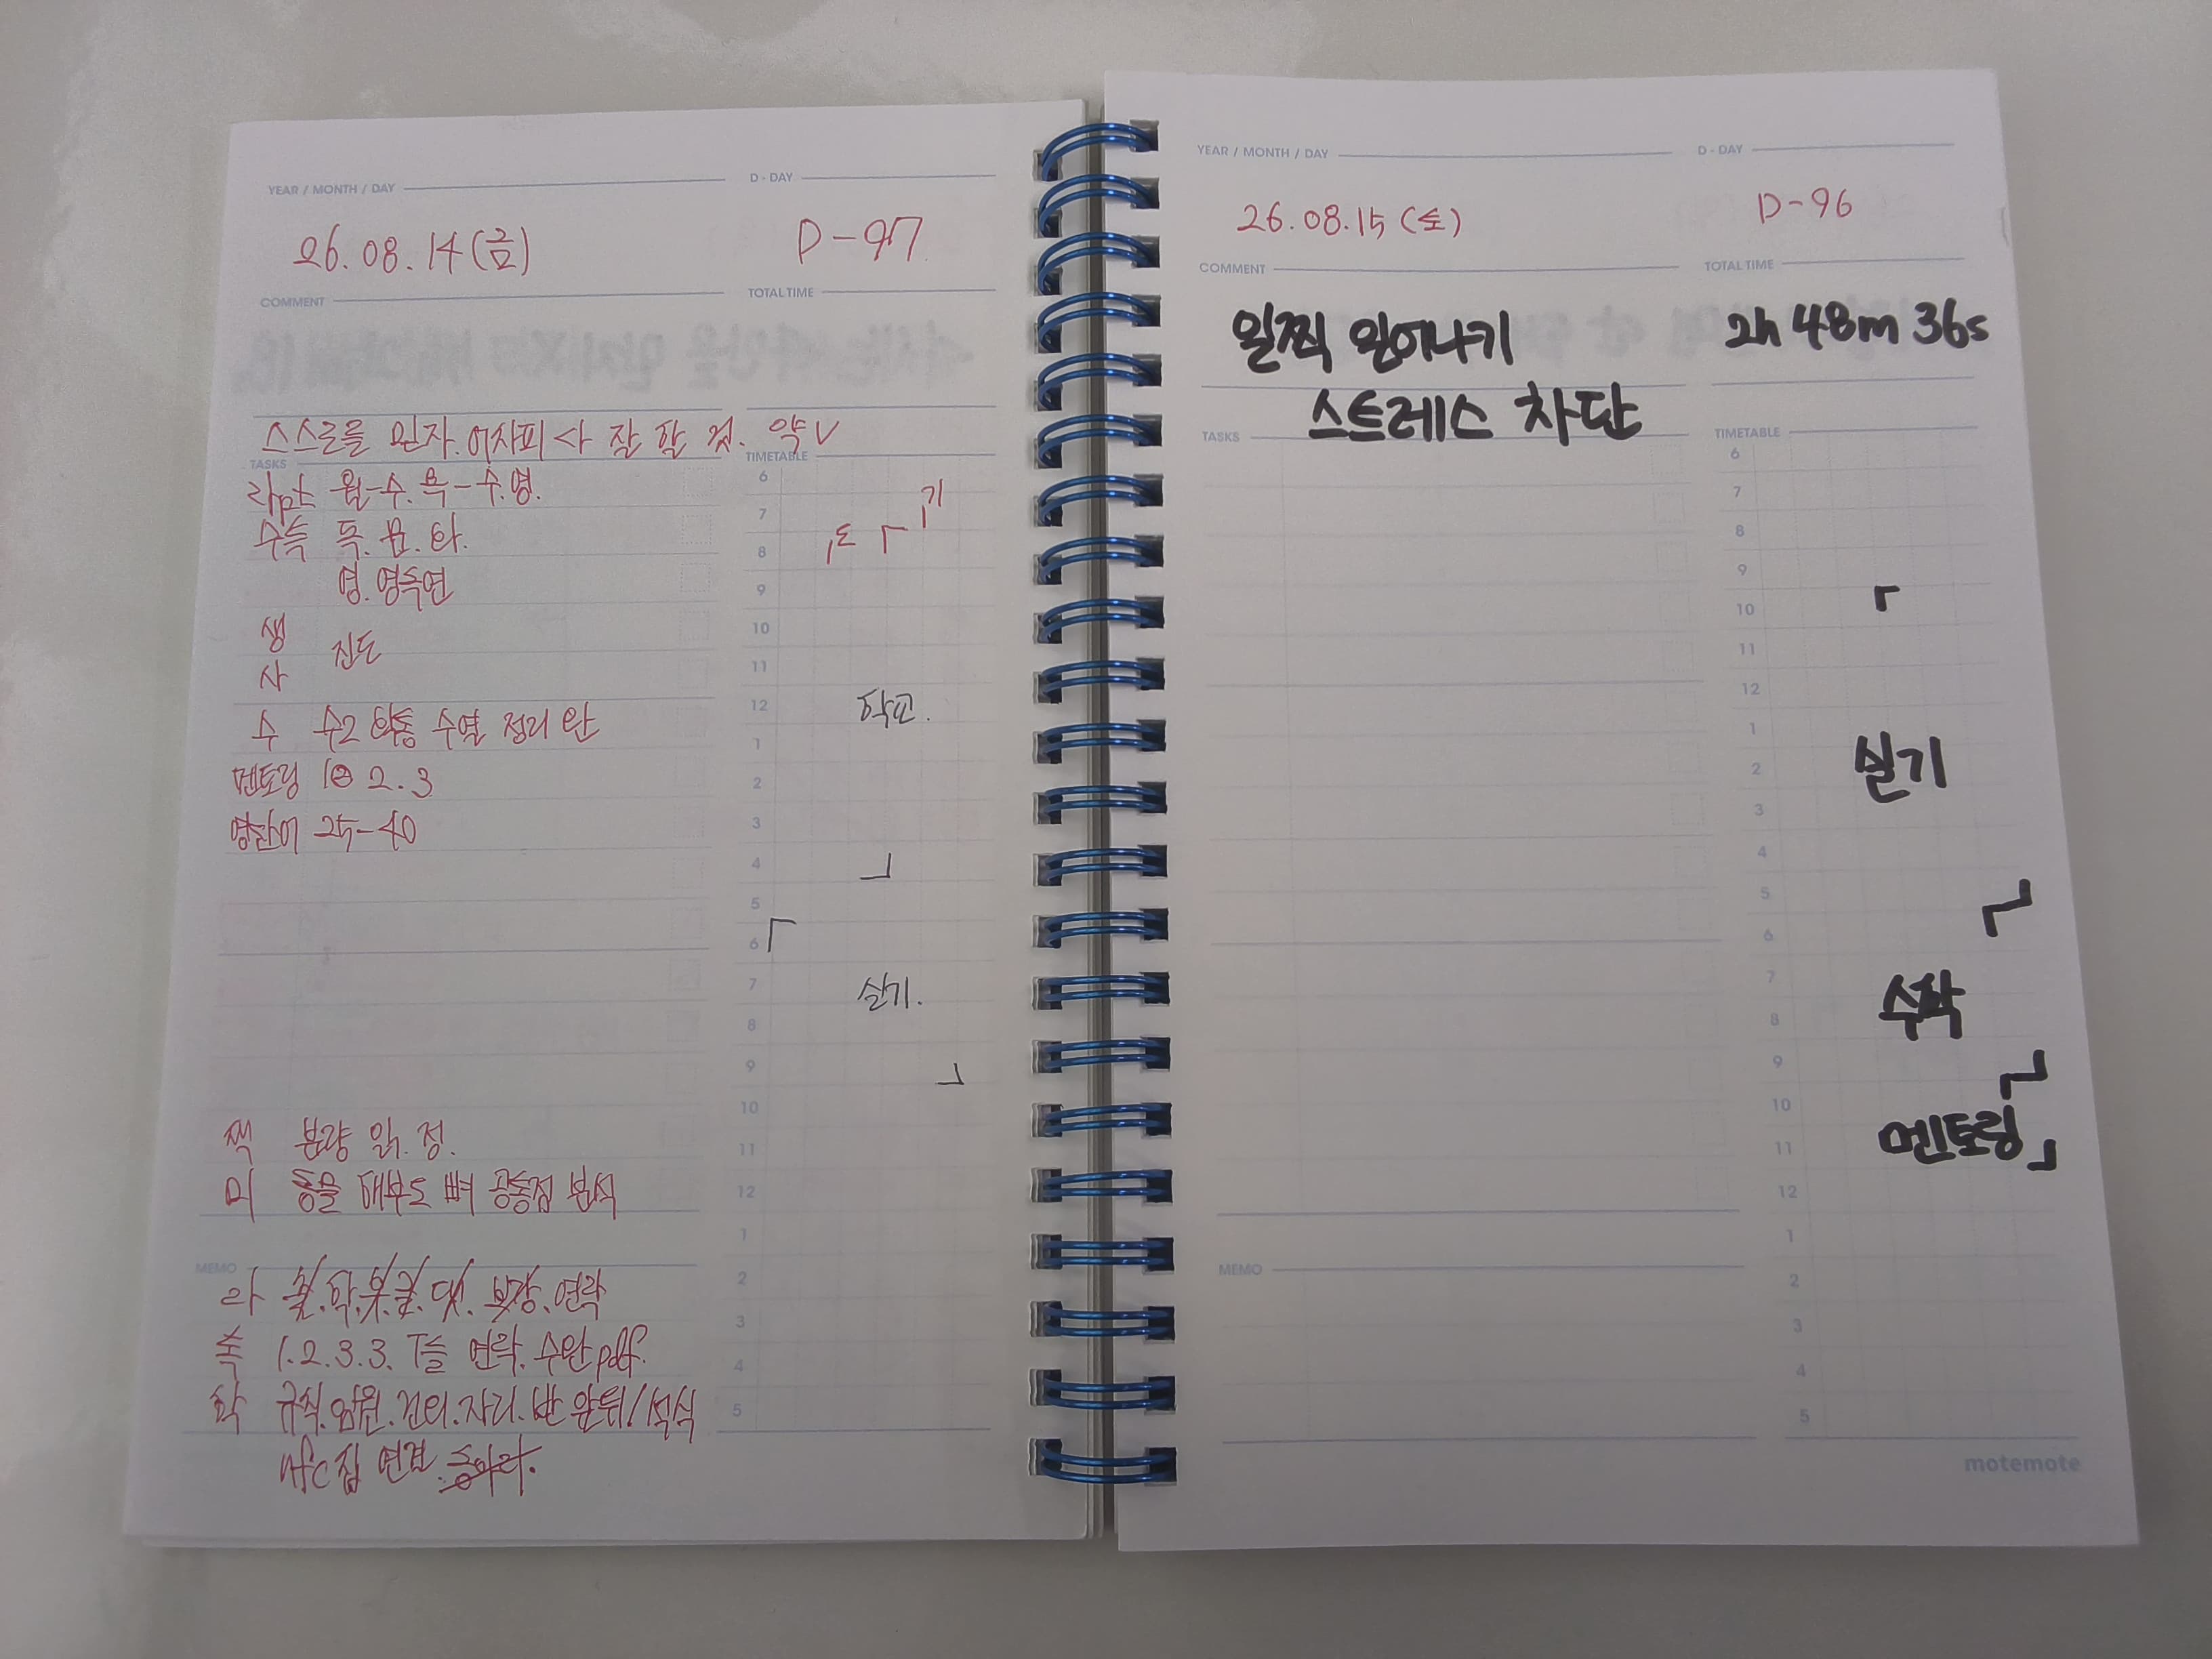 YEAR / MONTH / DAY
D - DAY
26.08.14(금)
D-97
COMMENT
TOTAL TIME
스스로를 믿자. 어차피 나 잘 할 것. 약V
TASKS
TIMETABLE
월-수. 목-수.영.
수특 독. 문. 화.
영. 영독연
생
사
진도
수 수2 수열 정리 완
멘토링 2. 3
영단어 25-40
책 분량 읽. 정.
미 동물 해부도 뼈 공통점 분석
6
7
8
9
10
11
12
1
2
3
4
5
6
7
8
9
10
11
12
1
2
3
4
5
기
학교.
실기.
MEMO
연락
1.2.3.3. T들 연락. 수완pdf.
학 규칙. 임원. 건의. 자리. 반 앞뒤/석식
nfc집 연결. 동아리.
YEAR / MONTH / DAY
D - DAY
26.08.15(토)
D-96
COMMENT
TOTAL TIME
일찍 일어나기
2h 48m 36s
스트레스 차단
TASKS
TIMETABLE
6
7
8
9
10
11
12
1
2
3
4
5
6
7
8
9
10
11
12
1
2
3
4
5
실기
수학
멘토링
MEMO
motemote